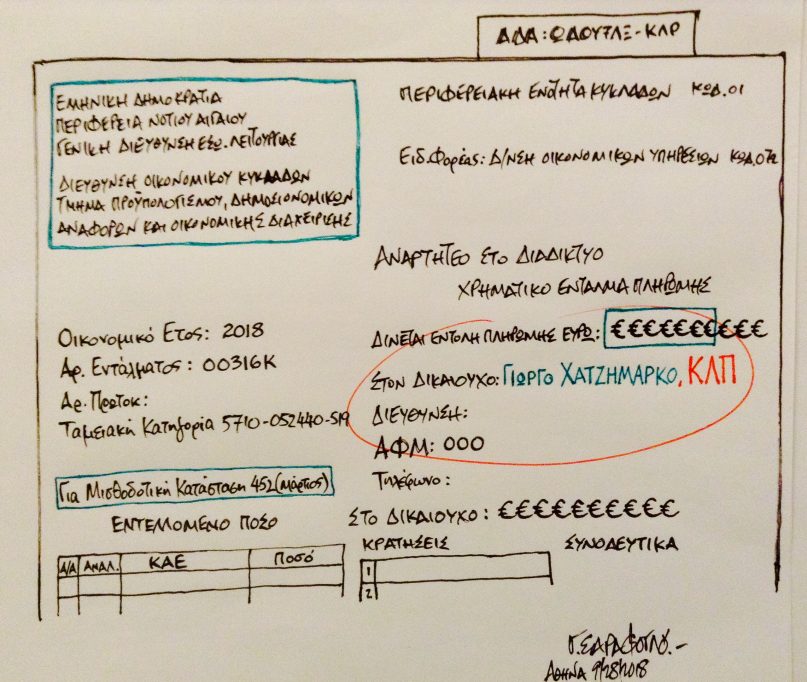 ΑΔΑ: ΩΔΟΥ7ΛΞ-ΚΛΡ
ΕΛΛΗΝΙΚΗ ΔΗΜΟΚΡΑΤΙΑ
ΠΕΡΙΦΕΡΕΙΑ ΝΟΤΙΟΥ ΑΙΓΑΙΟΥ
ΓΕΝΙΚΗ ΔΙΕΥΘΥΝΣΗ ΕΣΩ. ΛΕΙΤΟΥΡΓΙΑΣ
ΔΙΕΥΘΥΝΣΗ ΟΙΚΟΝΟΜΙΚΟΥ ΚΥΚΛΑΔΩΝ
ΤΜΗΜΑ ΠΡΟΫΠΟΛΟΓΙΣΜΟΥ, ΔΗΜΟΣΙΟΝΟΜΙΚΩΝ
ΑΝΑΦΟΡΩΝ ΚΑΙ ΟΙΚΟΝΟΜΙΚΗΣ ΔΙΑΧΕΙΡΙΣΗΣ
ΠΕΡΙΦΕΡΕΙΑΚΗ ΕΝΟΤΗΤΑ ΚΥΚΛΑΔΩΝ ΚΩΔ. 01
Ειδ. Φορέας: Δ/ΝΣΗ ΟΙΚΟΝΟΜΙΚΩΝ ΥΠΗΡΕΣΙΩΝ ΚΩΔ. 072
ΑΝΑΡΤΗΤΕΟ ΣΤΟ ΔΙΑΔΙΚΤΥΟ
ΧΡΗΜΑΤΙΚΟ ΕΝΤΑΛΜΑ ΠΛΗΡΩΜΗΣ
Οικονομικό Ετος: 2018
Αρ. Εντάλματος: 00316Κ
Αρ. Πρωτοκ:
Ταμειακή Κατηγορία 5710-052440-519
ΔΙΝΕΤΑΙ ΕΝΤΟΛΗ ΠΛΗΡΩΜΗΣ ΕΥΡΩ: €€€€€€€€€€
ΣΤΟΝ ΔΙΚΑΙΟΥΧΟ: ΓΙΩΡΓΟ ΧΑΤΖΗΜΑΡΚΟ, ΚΛΠ
ΔΙΕΥΘΥΝΣΗ:
ΑΦΜ: 000
Τηλέφωνο:
Για Μισθοδοτική Κατάσταση 452 (Μάρτιος)
ΣΤΟ ΔΙΚΑΙΟΥΧΟ: €€€€€€€€€€
ΕΝΤΕΛΛΟΜΕΝΟ ΠΟΣΟ
ΚΡΑΤΗΣΕΙΣ ΣΥΝΟΔΕΥΤΙΚΑ
Α/Α ΑΝΑΛ. ΚΑΕ Ποσό
1
2
ΑΘΗΝΑ 9/28/2018